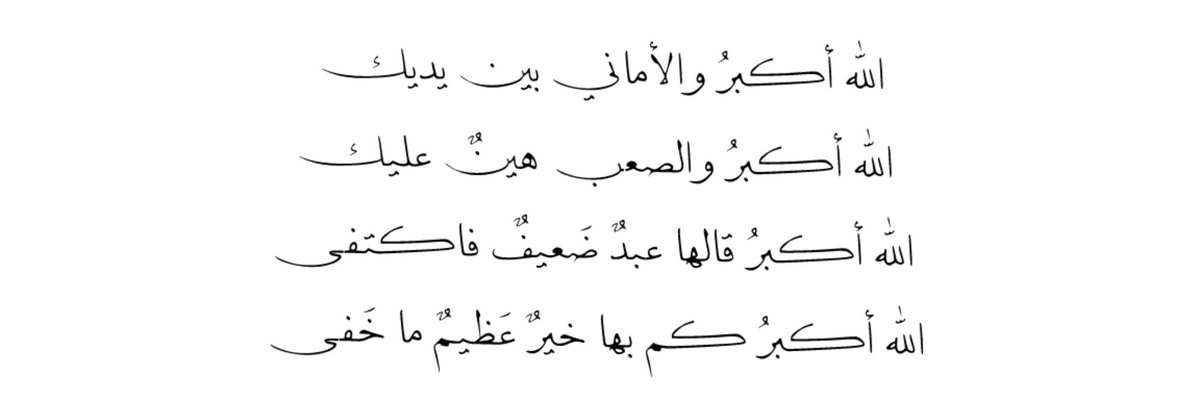 الله أكبرُ والأماني بين يديك
الله أكبرُ والصعب هينٌ عليك
الله أكبرُ قالها عبدٌ ضَعيفٌ فاكتفى
الله أكبرُ كم بها خيرٌ عَظيمٌ ما خَفى